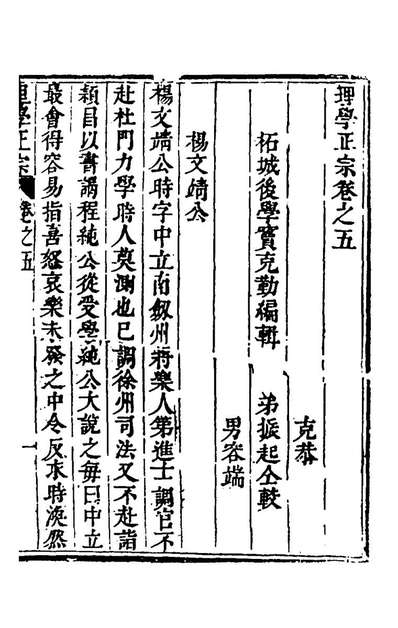 理學正宗卷之五
柘城後學竇克勤編輯
克恭
弟振起仝較
男容端
楊文靖公
楊文靖公時字中立南劔州將樂人第進士調官不
赴杜門力學時人莫測也已調徐州司法又不赴詣
頴昌以書謁程純公從受學純公大說之每曰中立
最會得容易指喜怒哀樂未發之中令反求時渙然
理學正宗 卷之五 一